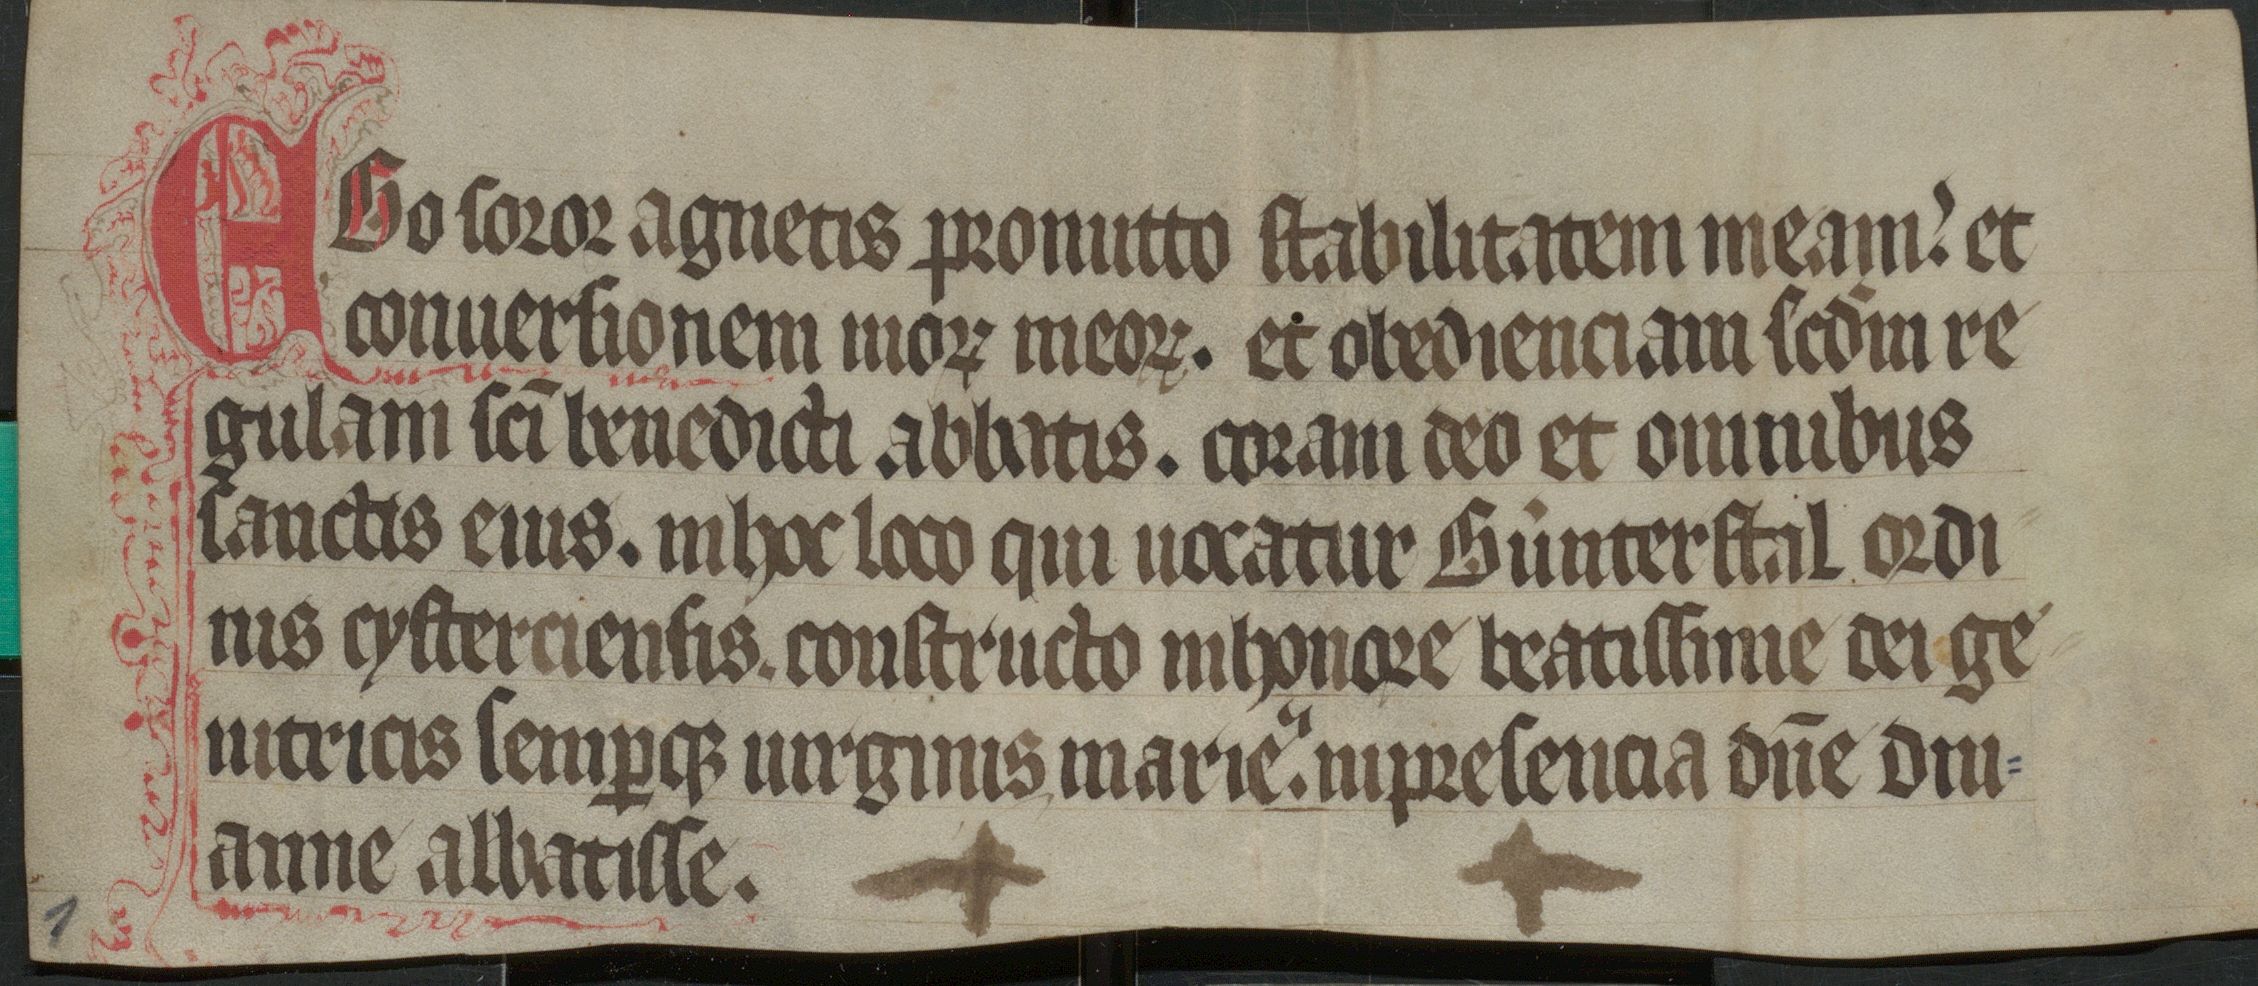 EGo soror agnetis promitto stabilitatem meam. et
conuersionem morꝝ meorꝝ. et obedienciam scd̄m re
gulam sc̄i benedicti abbatis. coram deo et omnibus
sanctis eius. in hoc loco qui uocatur Gu̍nterstal ordi
nis cysterciensis. constructo in honore beatissime dei ge
nitricis semꝑqꝫ uirginis marie. in presencia dn̄e
anne abbatisse.
1